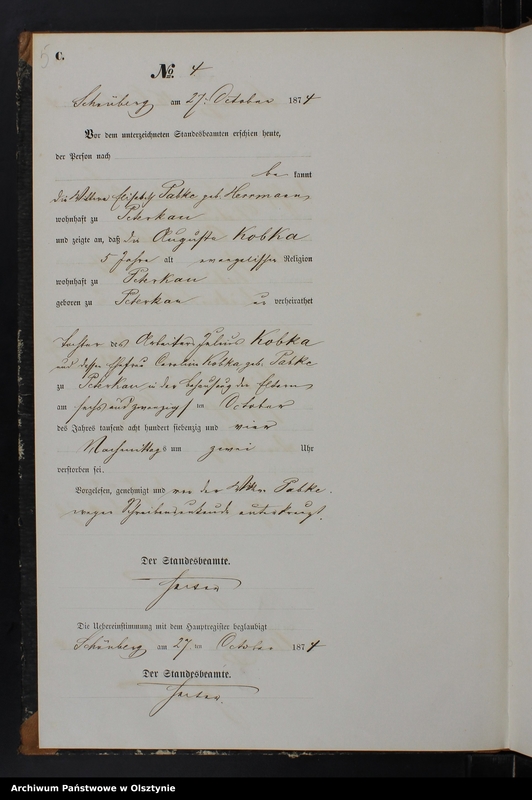 C.
No. 4
Schönberg am 27. October 1874
Vor dem unterzeichneten Standesbeamten erschien heute,
der Person nach
be kannt
die Wittwe Elisabeth Pabke geb. Herrmann,
wohnhaft zu Peterkau
und zeigte an, daß die Auguste Kobka
5 Jahre alt evangelischer Religion
wohnhaft zu Peterkau
geboren zu Peterkau un verheirathet
Tochter des Arbeiters Julius Kobka
und dessen Ehefrau Caroline Kobka geb. Pabke
zu Peterkau in der Behausung der Eltern
am sechs und zwanzigsten October
des Jahres tausend acht hundert siebenzig und vier
Nachmittags um zwei Uhr
verstorben sei.
Vorgelesen, genehmigt und von der Wwe. Pabke
wegen Schreibensunkunde unterkreuzt.
Der Standesbeamte.
Die Uebereinstimmung mit dem Hauptregister beglaubigt
Schönberg am 27. ten October 1874
Der Standesbeamte.
Archiwum Państwowe w Olsztynie